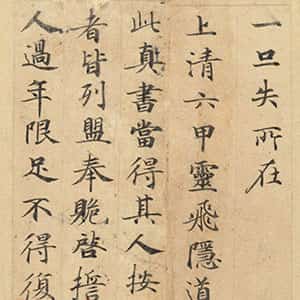 一旦失所在
上清六甲靈飛隱道
此真書當得其人按
者皆列盟奉貤啓誓
人過年限足不得復